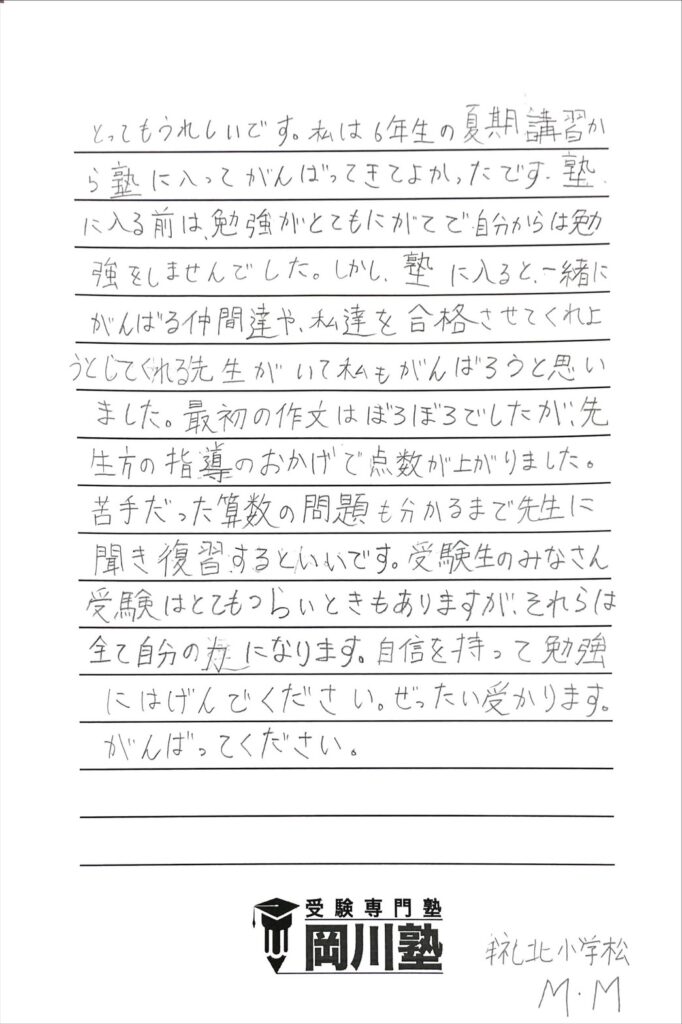 とってもうれしいです。私は6年生の夏期講習か
ら塾に入ってがんばってきてよかったです。塾
に入る前は、勉強がとてもにがてで自分からは勉
強をしませんでした。しかし、塾に入ると、一緒に
がんばる仲間達や、私達を合格させてくれよ
うとしてくれる先生がいて私もがんばろうと思い
ました。最初の作文はぼろぼろでしたが、先
生方の指導のおかげで点数が上がりました。
苦手だった算数の問題も分かるまで先生に
聞き復習するといいです。受験生のみなさん
受験はとてもつらいときもありますが、それらは
全て自分の力になります。自信を持って勉強
にはげんでください。ぜったい受かります。
がんばってください。
受験専門塾
岡川塾
北小学校
M.M